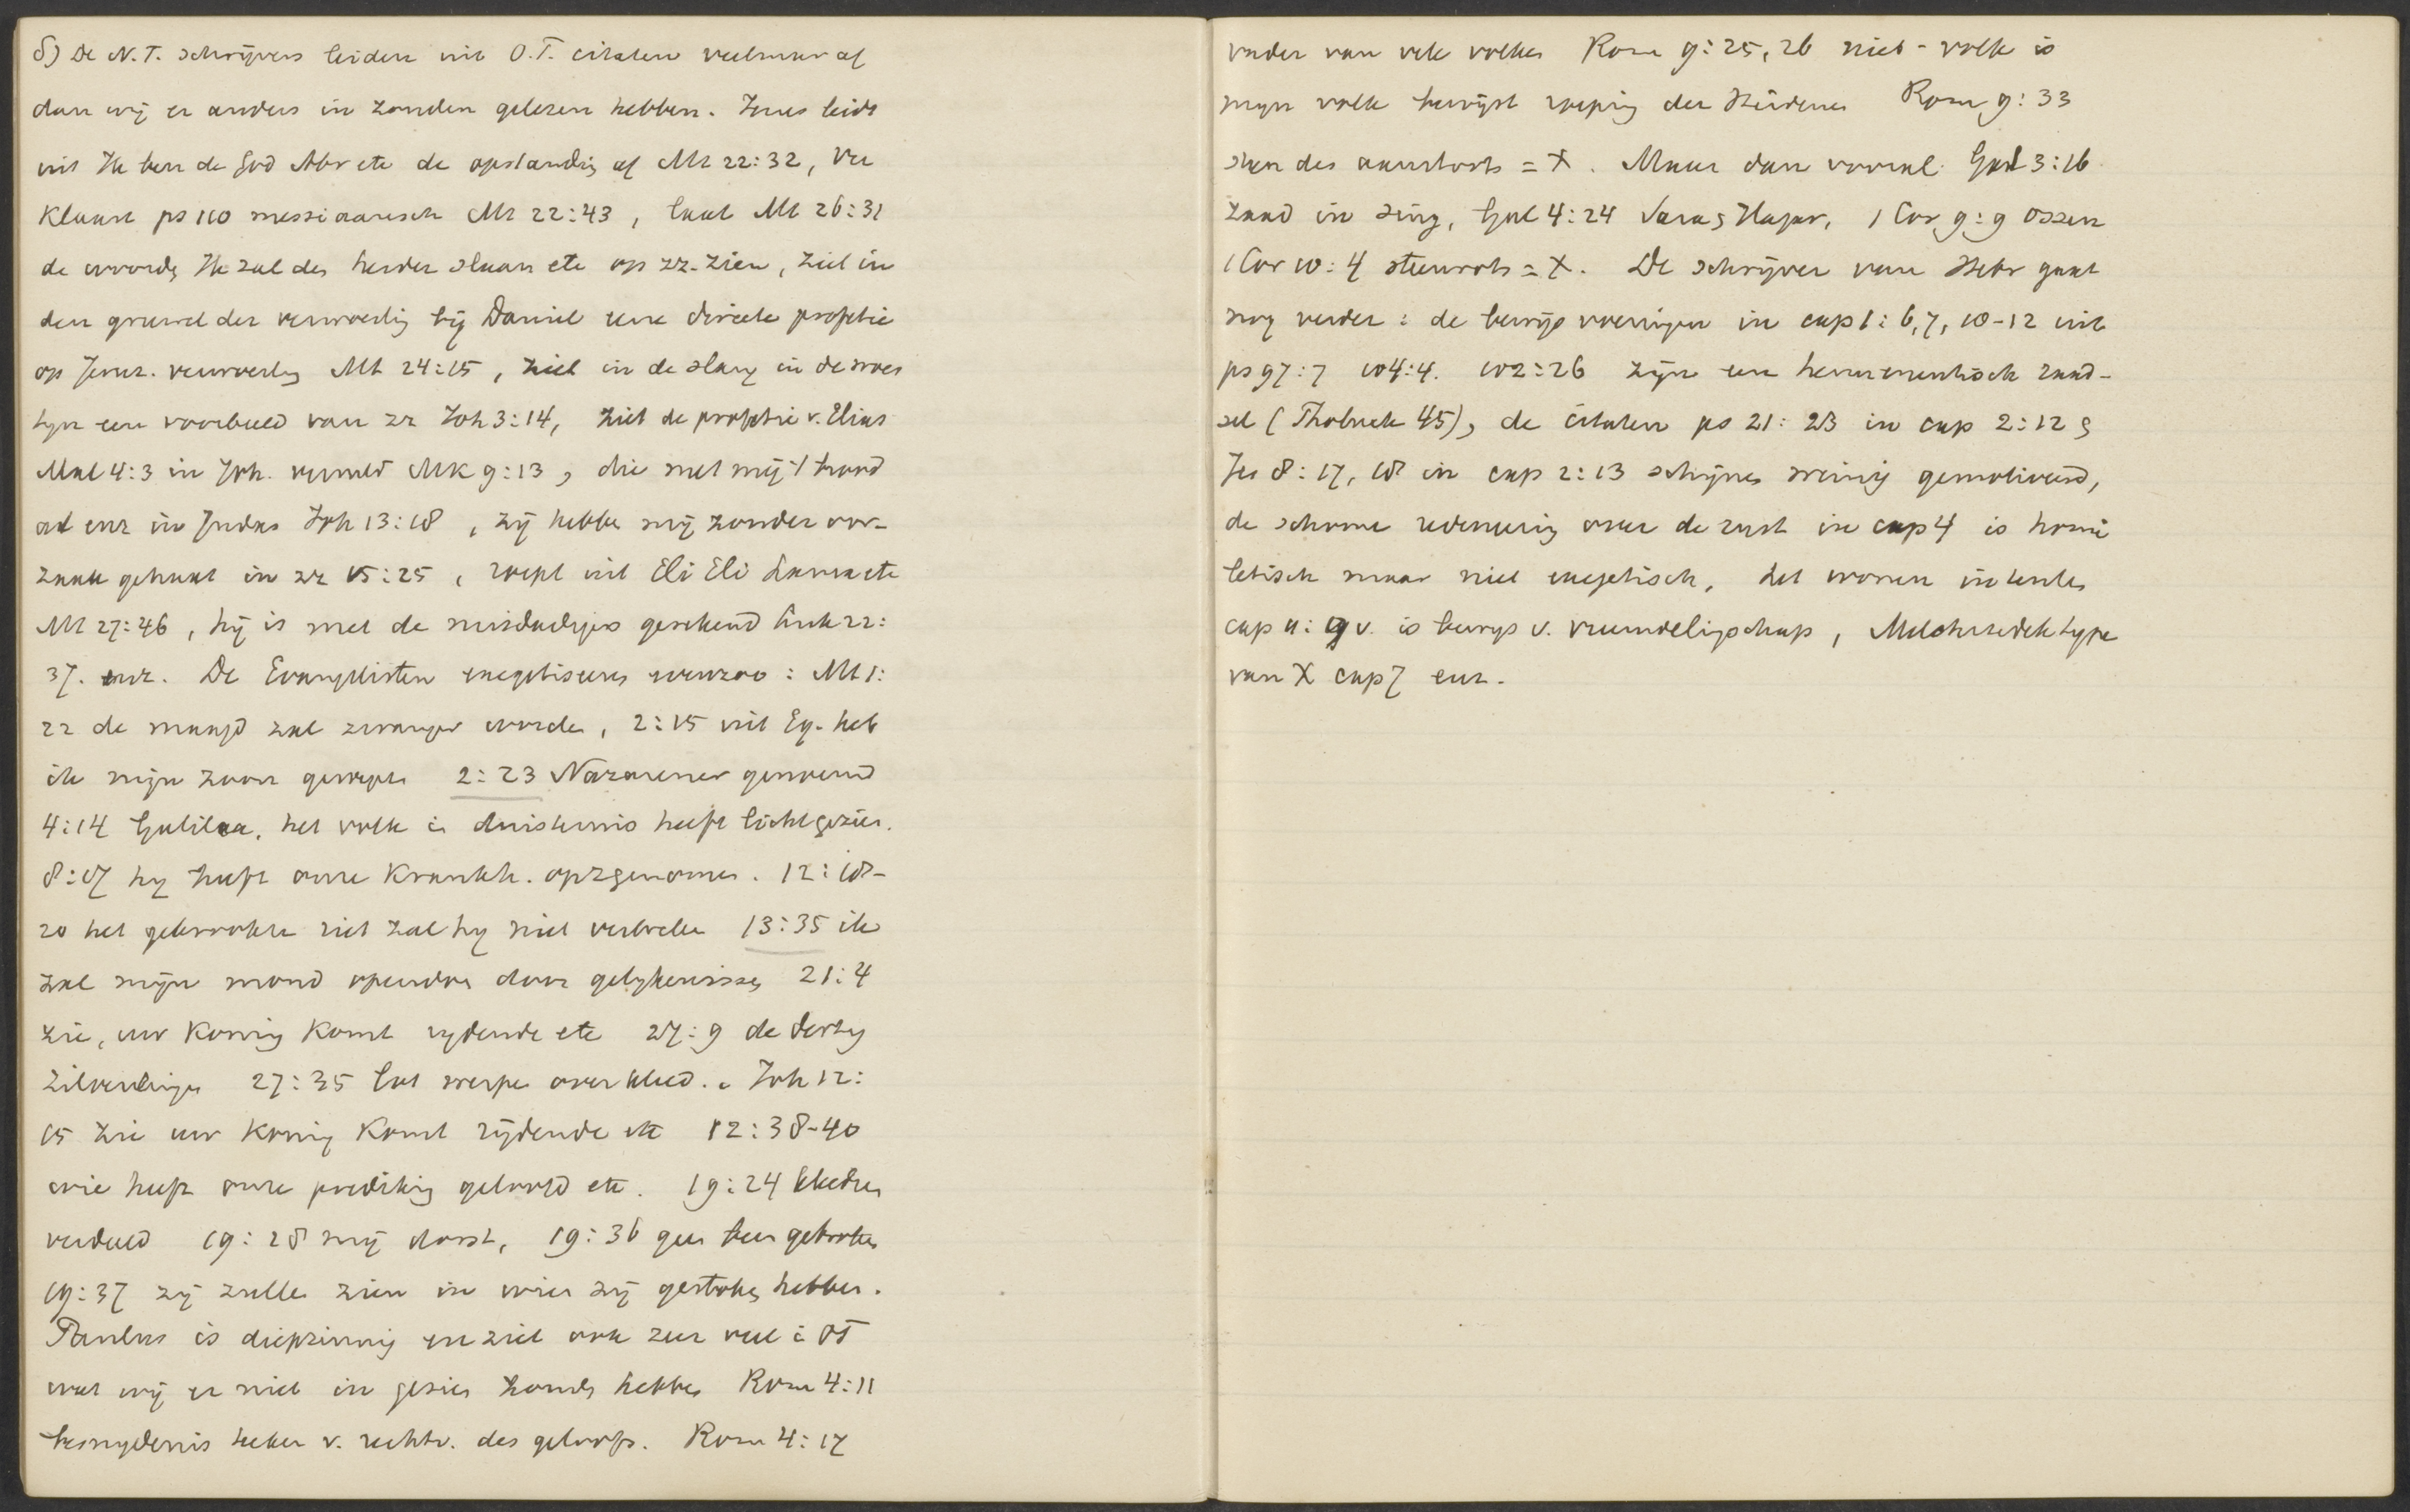 δ) De N.T. schrijvers leiden uit O.T. citaten veelmeer af
dan wij er anders in zouden gelezen hebben. Jezus leidt
uit Ik ben de God Abr etc de opstanding af Mt 22:32, ver
klaart ps 110 messiaansch Mt 22:43, laat Mt 26:31
de woorden Ik zal den herder slaan etc op zz. zien, ziet in
den gruwel der verwoesting bij Daniel eene directe profetie
op Jeruz. verwoesting Mt 24:15, ziet in de slang in de woes
tijn een voorbeeld van zz Joh 3:14, ziet de profetie v. Elias
Mal 4:3 in Joh. vervuld Mk 9:13, die met mij 't brood
at enz in Judas Joh 13:18, zij hebben mij zonder oor-
zaak gehaat in zz 15:25, roept uit Eli Eli Lama etc
Mt 27:46, hij is met de misdadigers gerekend Luk 22:
37. enz. De Evangelisten exegetiseeren evenzoo: Mt 1:
22 de maagd zal zwanger worden, 2:15 uit Eg. heb
ik mijn zoon geroepen 2:23 Nazarener genoemd
4:14 Galilea, het volk in duisternis heeft licht gezien.
8:17 hij heeft onze krankh. op zg genomen. 12:18-
20 het gekrookte riet zal hij niet verbreken 13:35 ik
zal mijn mond opendoen door gelijkenissen 21:4
zie, uw koning komt rijdende etc 27:9 de dertig
zilverlingen 27:35 lot werpen over kleed. Joh 12:
15 zie uw koning komt rijdende etc 12:38-40
wie heeft onze prediking geloofd etc. 19:24 kleederen
verdeeld 19:28 mij dorst, 19:36 geen been gebroken
19:37 zij zullen zien in wien zij gestoken hebben.
Paulus is diepzinnig en ziet ook zeer veel in OT
wat wij er niet in gezien zouden hebben Rom 4:11
besnijdenis teeken v. rechtv. des geloofs. Rom 4:17
vader van vele volken Rom 9:25, 26 niet-volk is
mijn volk bewijst roeping der Heidenen Rom 9:33
steen des aanstoots = X. Maar dan vooral Gal 3:16
zaad in sing, Gal 4:24 Sara en Hagar, 1 Cor 9:9 ossen
1 Cor 10:4 steenrots = X. De schrijver van Hebr gaat
nog verder: de bewijsvoeringen in cap 1:6,7,10-12 uit
ps 97:7 104:4. 102:26 zijn een hermeneutisch raad-
sel (Tholuck 45), de citaten ps 21:23 in cap 2:12 en
Jes 8:17, 18 in cap 2:13 schijnen weinig gemotiveerd,
de schoone redeneering over de rust in cap 4 is homi
letisch maar niet exegetisch, het wonen in tenten
cap 11:9 v. is bewijs v. vreemdelingschap, Melchizedek type
van X cap 7 enz.